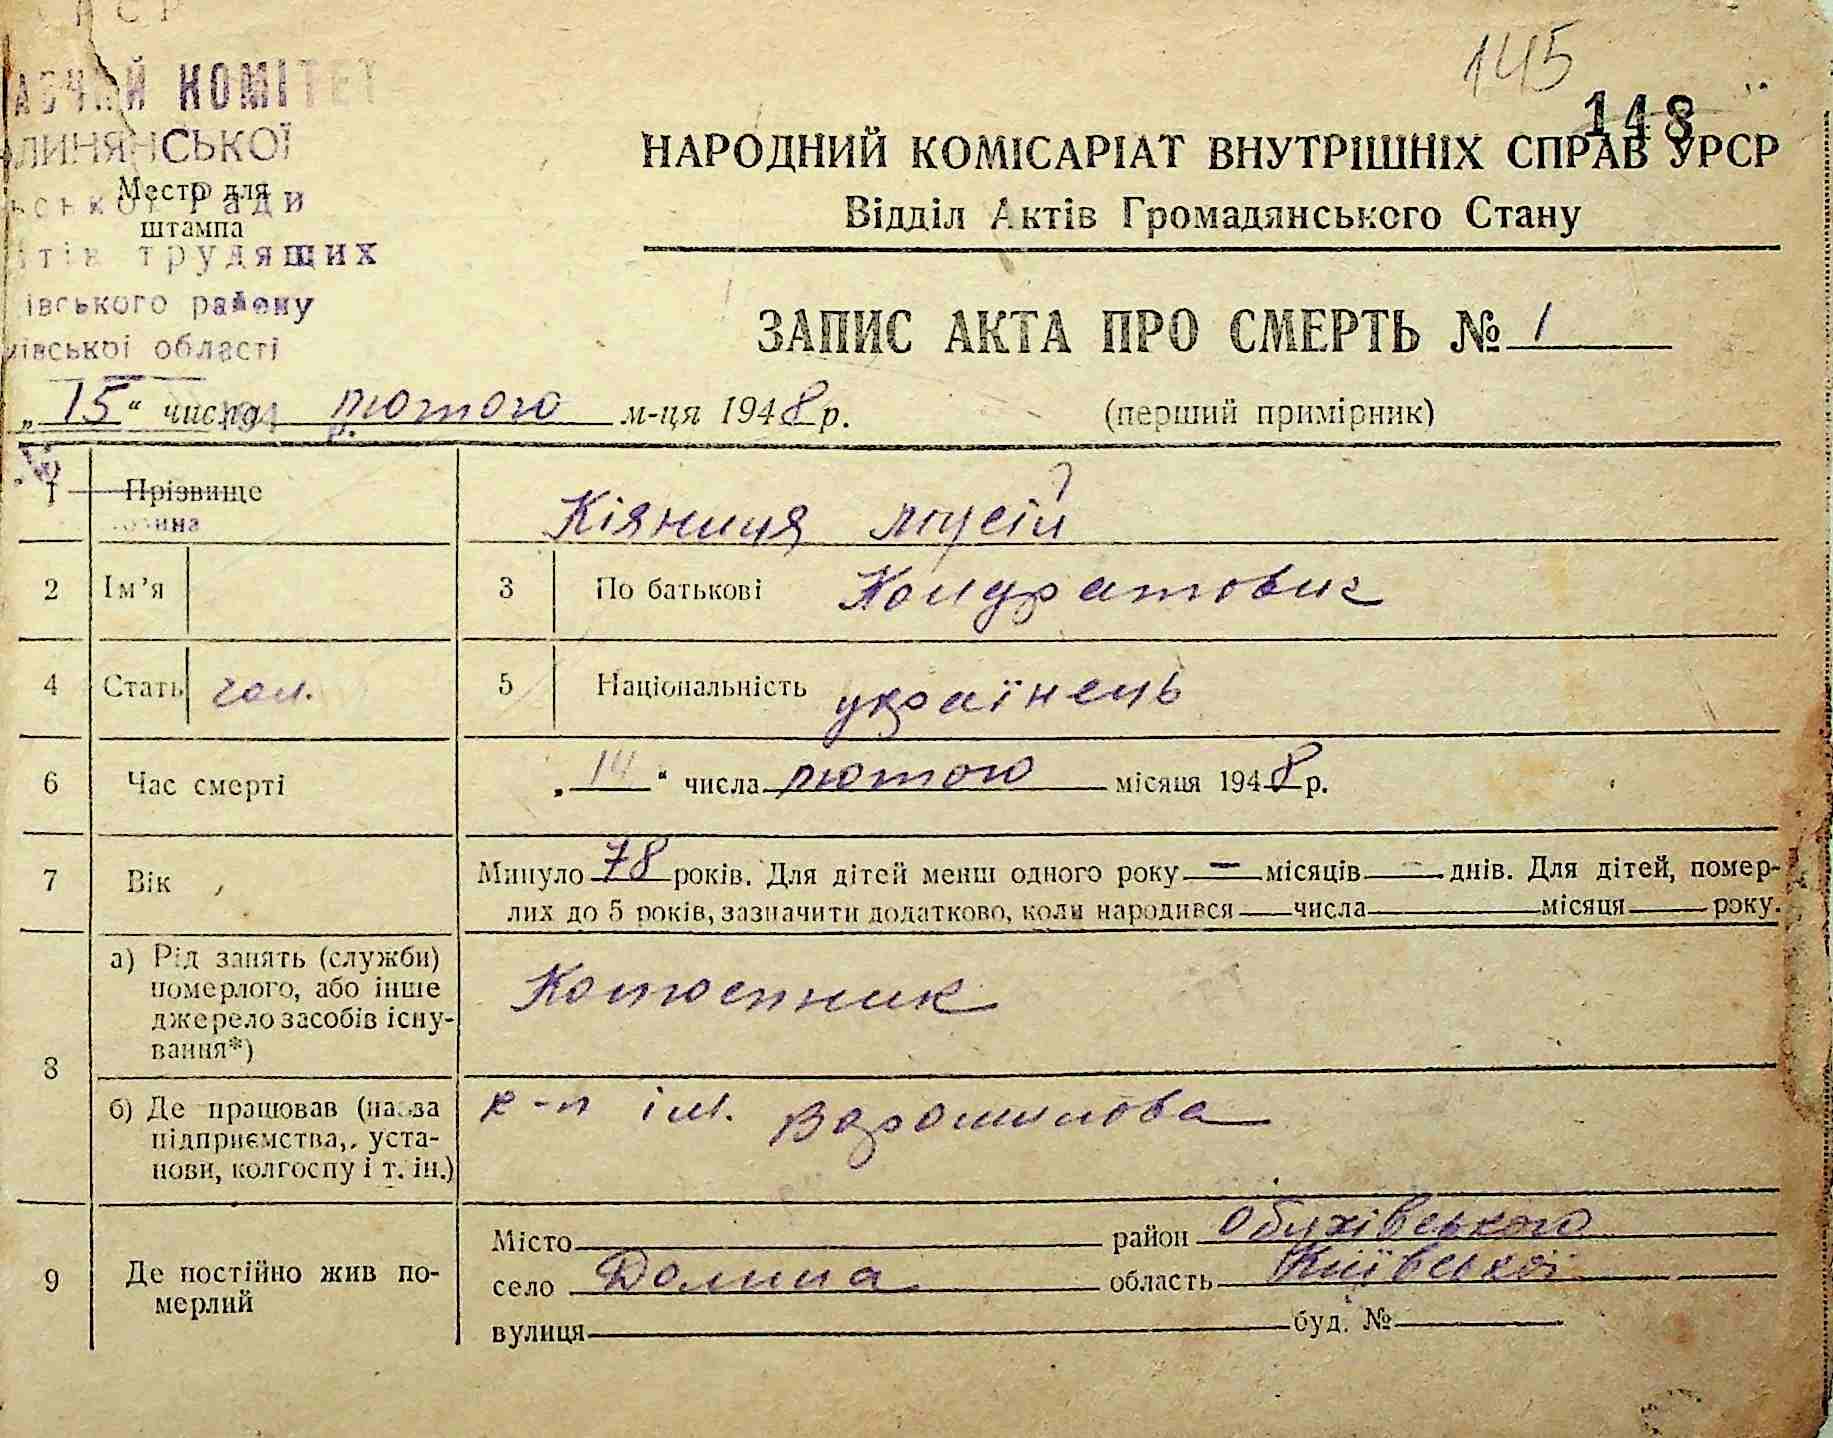 145
148
КОМІТЕТ
ЛИНЯНСЬКОЇ
Место для
Ради
штампа
трудящих
івського району
ївської області
НАРОДНИЙ КОМІСАРІАТ ВНУТРІШНІХ СПРАВ УРСР
Відділ Актів Громадянського Стану
ЗАПИС АКТА ПРО СМЕРТЬ № 1
„15“ числа лютого м-ця 1948 р.
(перший примірник)
1 Прізвище Кіяниця Мусій
2 Ім’я 3 По батькові Кондратович
4 Стать чол. 5 Національність українець
6 Час смерті „14“ числа лютого місяця 1948 р.
7 Вік Минуло 78 років. Для дітей менш одного року — місяців — днів. Для дітей, помер-
лих до 5 років, зазначити додатково, коли народився числа місяця року.
8 а) Рід занять (служби)
померлого, або інше
джерело засобів існу-
вання*)
Колгоспник
б) Де працював (назва
підприємства, уста-
нови, колгоспу і т. ін.)
к-п ім. Ворошилова
9 Де постійно жив по-
мерлий
Місто район Обухівського
село Долина область Київської
вулиця буд. №